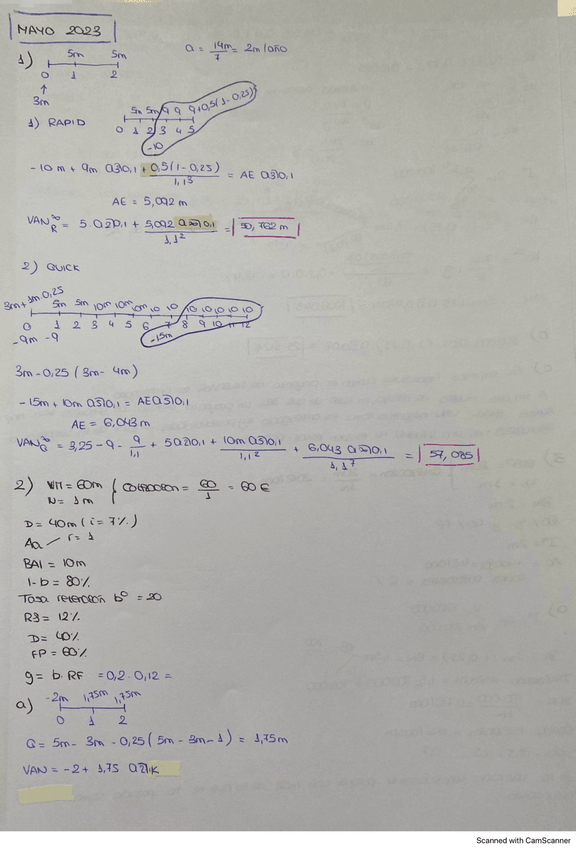 MAYO 2023
1)
5m 5m
0 1 2
3m
a = 14m/7 = 2m/año
1) RAPID
5m 5m 9 9 9+0,5(1-0,25)
0 1 2 3 4 5
-10
-10m + 9m a3]0,1 + 0,5(1-0,25)/1,1³ = AE a3]0,1
AE = 5,092 m
VAN∞R = 5 a2]0,1 + 5,092 a∞]0,1/1,1² = 50,762 m
2) QUICK
3m+1m·0,25 5m 5m 10m 10m 10m 10 10 10 10 10 10 10
0 1 2 3 4 5 6 7 8 9 10 11 12
-9m -9 -15m
3m-0,25 (3m-4m)
-15m + 10m a5]0,1 = AE a5]0,1
AE = 6,043 m
VAN∞Q = 3,25 - 9 - 9/1,1 + 5 a2]0,1 + 10m a5]0,1/1,1² + 6,043 a∞]0,1/1,1⁷ = 57,085
2) VM = 60m
N = 1m
Cotización = 60/1 = 60 €
D = 40m (i = 7%)
Aa r = 1
BAI = 10m
1-b = 80%
Tasa retención b° = 20
RF = 12%
D = 40%
FP = 60%
g = b·RF = 0,2·0,12 =
a) -2m 1,75m 1,75m
0 1 2
Q = 5m - 3m - 0,25 (5m - 3m - 1) = 1,75m
VAN = -2 + 1,75 a2]K
Scanned with CamScanner